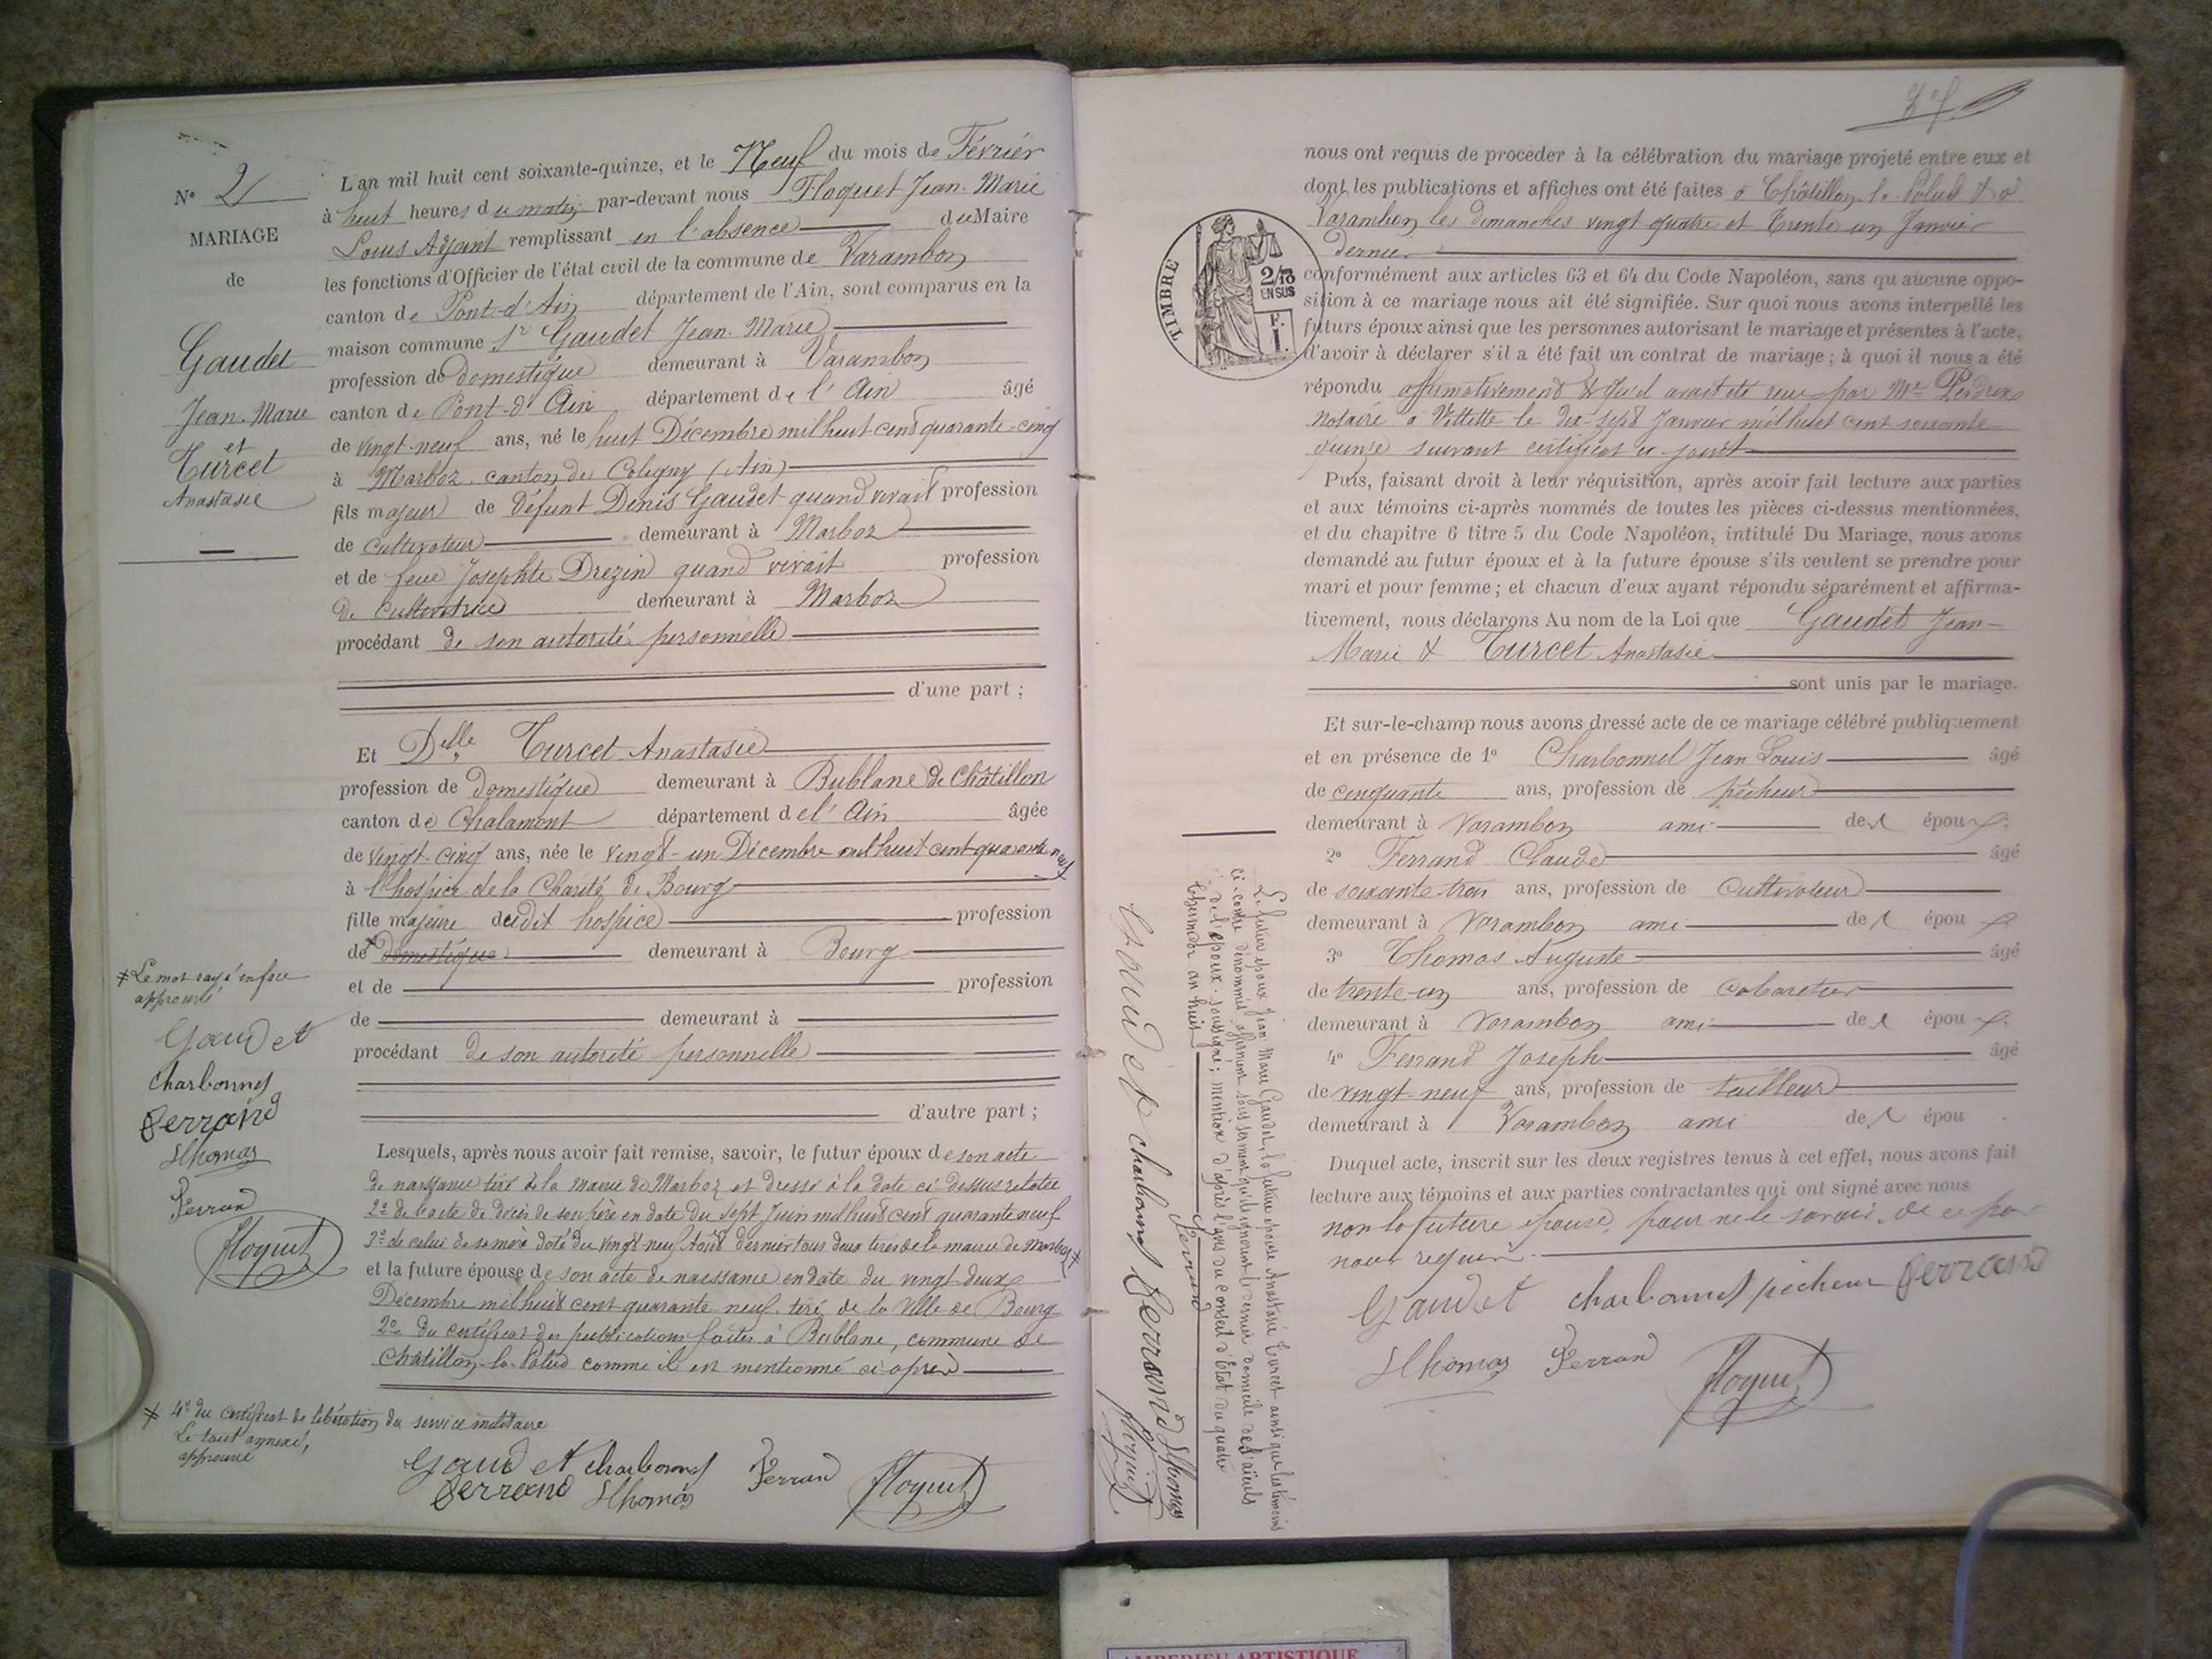 N° 2
MARIAGE
de
Gaudet
Jean-Marie
et
Turcet
Anastasie
L'an mil huit cent soixante-quinze, et le Neuf du mois de Février
à huit heures du matin par-devant nous Floquet Jean-Marie
Louis Adjoint remplissant en l'absence du Maire
les fonctions d'Officier de l'état civil de la commune de Varambon
canton de Pont-d'Ain département de l'Ain, sont comparus en la
maison commune Sr Gaudet Jean-Marie
profession de domestique demeurant à Varambon
canton de Pont-d'Ain département de l'Ain âgé
de vingt-neuf ans, né le huit Décembre mil huit cent quarante-cinq
à Marboz, canton de Coligny (Ain)
fils majeur de défunt Denis Gaudet quand vivait profession
de cultivateur demeurant à Marboz
et de feue Josephte Drezin quand vivait profession
de cultivatrice demeurant à Marboz
procédant de son autorité personnelle
d'une part ;
Et Delle Turcet Anastasie
profession de domestique demeurant à Bublane de Châtillon
canton de Chalamont département de l'Ain âgée
de vingt-cinq ans, née le vingt-un Décembre mil huit cent quarante neuf
à l'hospice de la Charité de Bourg
fille majeure dudit hospice profession
de domestique demeurant à Bourg
et de profession
de demeurant à
procédant de son autorité personnelle
d'autre part ;
Le mot rayé en face
approuvé
Gaudet
Charbonnel
Ferrand
Thomas
Ferrand
Floquet
Lesquels, après nous avoir fait remise, savoir, le futur époux de son acte
de naissance tiré de la mairie de Marboz et dressé à la date ci-dessus relatée
2° de l'acte de décès de son père en date du sept Juin mil huit cent quarante neuf
3° de celui de sa mère daté du vingt neuf Août dernier tous deux tirés de la mairie de Marboz
et la future épouse de son acte de naissance en date du vingt-deux
Décembre mil huit cent quarante-neuf tiré de la Ville de Bourg
2° du certificat des publications faites à Bublane, commune de
Châtillon-la-Palud comme il est mentionné ci-après
4° du certificat de libération du service militaire
Le tout annexé,
approuvé
Gaudet Charbonnel Ferrand Floquet
Ferrand Thomas
TIMBRE
2/10
EN SUS
F.
1.
nous ont requis de procéder à la célébration du mariage projeté entre eux et
dont les publications et affiches ont été faites à Châtillon-la-Palud & à
Varambon les dimanches vingt quatre et trente un Janvier
dernier
conformément aux articles 63 et 64 du Code Napoléon, sans qu'aucune oppo-
sition à ce mariage nous ait été signifiée. Sur quoi nous avons interpellé les
futurs époux ainsi que les personnes autorisant le mariage et présentes à l'acte,
d'avoir à déclarer s'il a été fait un contrat de mariage ; à quoi il nous a été
répondu affirmativement & qu'il avait été reçu par Me Perdrix
notaire à Villette le dix-sept Janvier mil huit cent soixante
quinze suivant certificat ci-joint
Puis, faisant droit à leur réquisition, après avoir fait lecture aux parties
et aux témoins ci-après nommés de toutes les pièces ci-dessus mentionnées,
et du chapitre 6 titre 5 du Code Napoléon, intitulé Du Mariage, nous avons
demandé au futur époux et à la future épouse s'ils veulent se prendre pour
mari et pour femme ; et chacun d'eux ayant répondu séparément et affirma-
tivement, nous déclarons Au nom de la Loi que Gaudet Jean-
Marie & Turcet Anastasie
sont unis par le mariage.
Et sur-le-champ nous avons dressé acte de ce mariage célébré publiquement
et en présence de 1° Charbonnel Jean Louis âgé
de cinquante ans, profession de pêcheur
demeurant à Varambon ami de l époux
2° Ferrand Claude âgé
de soixante-trois ans, profession de cultivateur
demeurant à Varambon ami de l époux
3° Thomas Auguste âgé
de trente-un ans, profession de cabaretier
demeurant à Varambon ami de l époux
4° Ferrand Joseph âgé
de vingt-neuf ans, profession de tailleur
demeurant à Varambon ami de l épou
Duquel acte, inscrit sur les deux registres tenus à cet effet, nous avons fait
lecture aux témoins et aux parties contractantes qui ont signé avec nous
non la future épouse, pour ne le savoir, de ce par
nous requise.
Gaudet Charbonnel pêcheur Ferrand
Thomas Ferrand Floquet
Le futur époux Jean Marie Gaudet, la future épouse Anastasie Turcet ainsi que les témoins
ci-contre dénommés affirment sous serment qu'ils ignorent le dernier domicile des aïeuls
de l'époux soussigné ; mention d'après l'avis du Conseil d'Etat du quatre
thermidor an huit
Gaudet Charbonnel Ferrand Thomas
Ferrand Floquet
AMBERIEU ARTISTIQUE